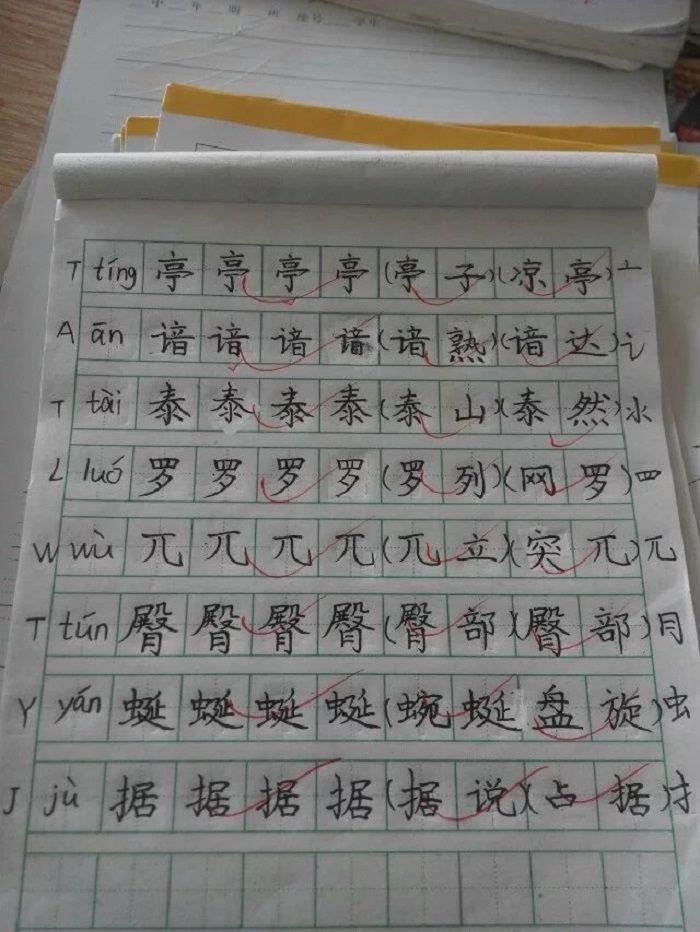 年 班 座号
T tíng 亭 亭 亭 亭 (亭 子)(凉 亭) 亠
A ān 谙 谙 谙 谙 (谙 熟)(谙 达) 讠
T tài 泰 泰 泰 泰 (泰 山)(泰 然) 氺
L luó 罗 罗 罗 罗 (罗 列)(网 罗) 罒
W wù 兀 兀 兀 兀 (兀 立)(突 兀) 兀
T tún 臀 臀 臀 臀 (臀 部)(臀 部) 月
Y yán 蜒 蜒 蜒 蜒 (蜿 蜒 盘 旋) 虫
J jù 据 据 据 据 (据 说)(占 据) 扌